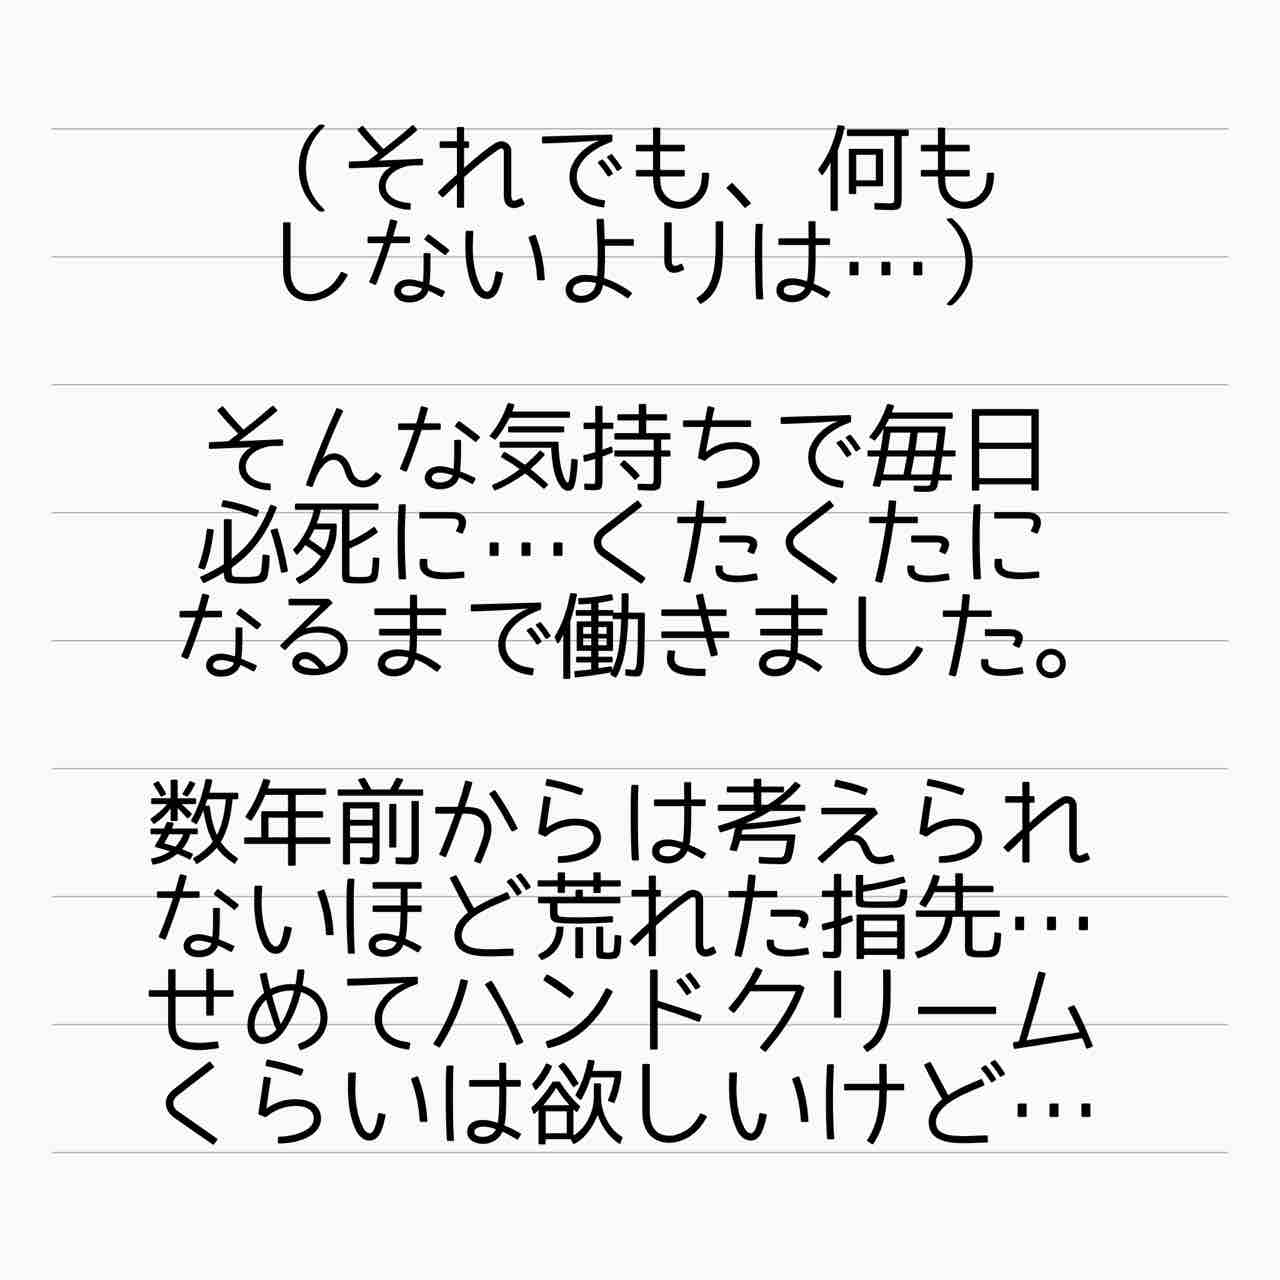 （それでも、何も
しないよりは…）
そんな気持ちで毎日
必死に…くたくたに
なるまで働きました。
数年前からは考えられ
ないほど荒れた指先…
せめてハンドクリーム
くらいは欲しいけど…